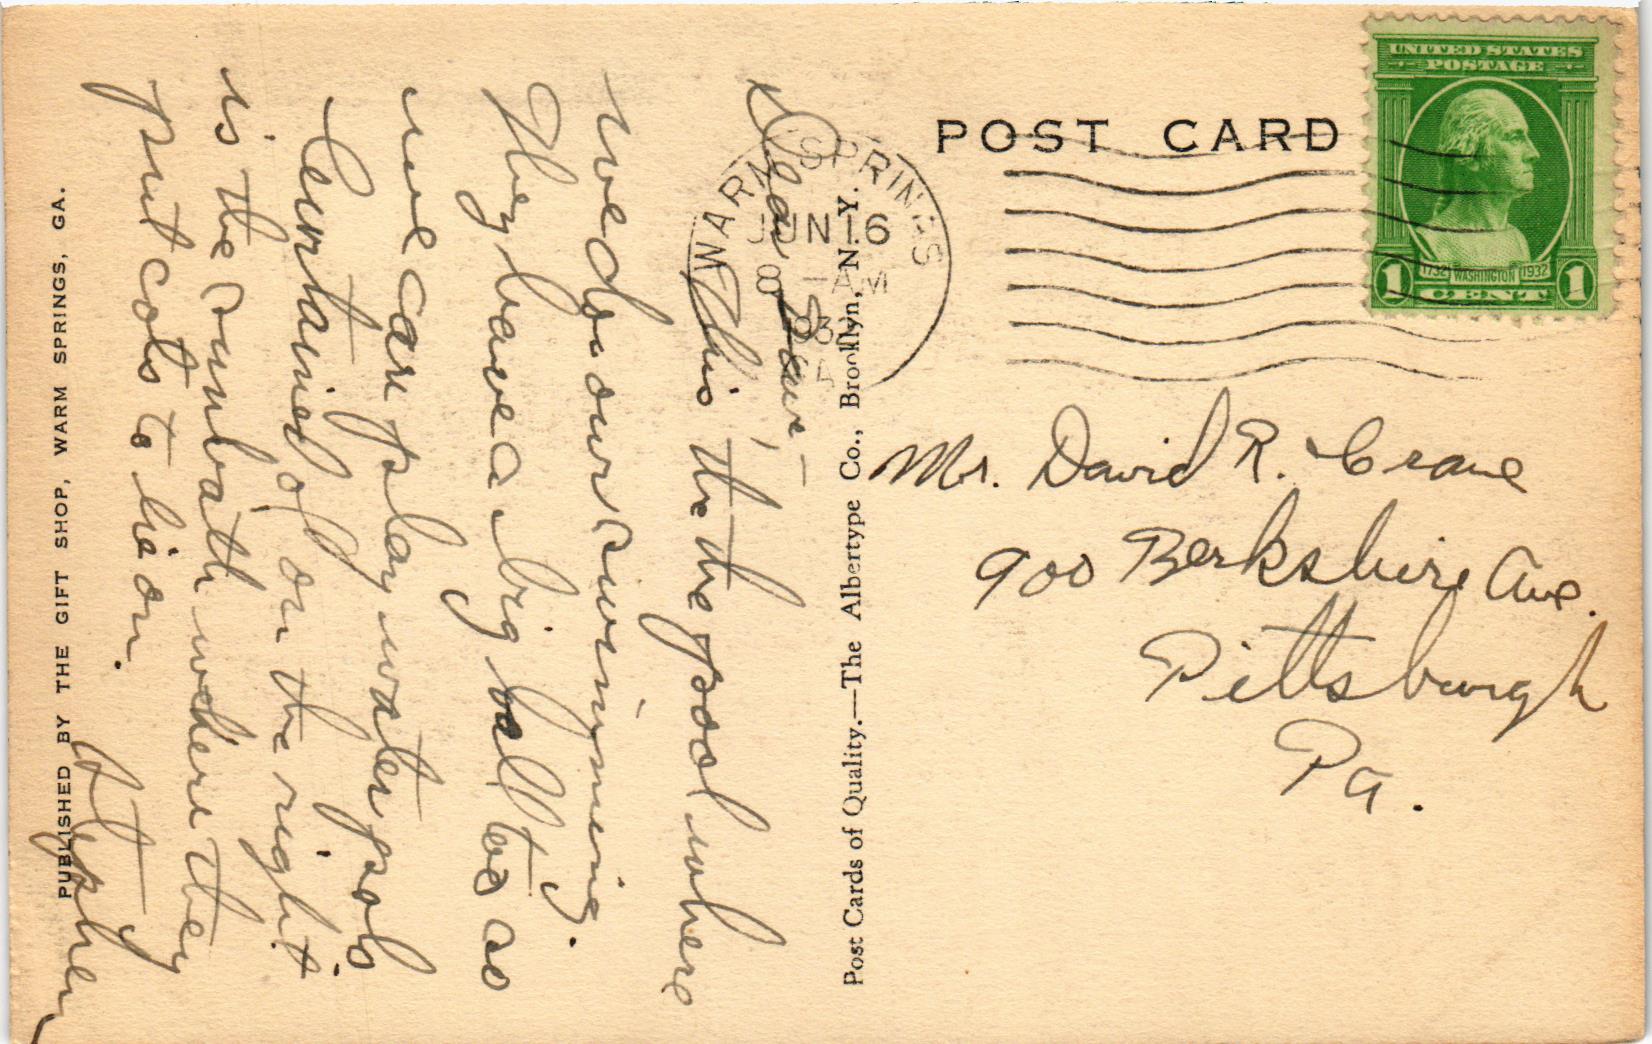 POST CARD
UNITED STATES
POSTAGE
1732 WASHINGTON 1932
1 CENT 1
WARM SPRINGS
JUN 16
8 - AM
1932
GA.
Dear Dave, -
This is the pool where
we do our swimming.
They have a big ball too so
we can play water polo
Curtained off on the right
is the sunbath where they
put cots to lie on.
PUBLISHED BY THE GIFT SHOP, WARM SPRINGS, GA.
Post Cards of Quality.—The Albertype Co., Brooklyn, N. Y.
Mr. David R. Crane
900 Berkshire Ave.
Pittsburgh
Pa.